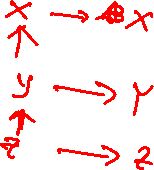 x → X
↑
y → Y
↑
z → z